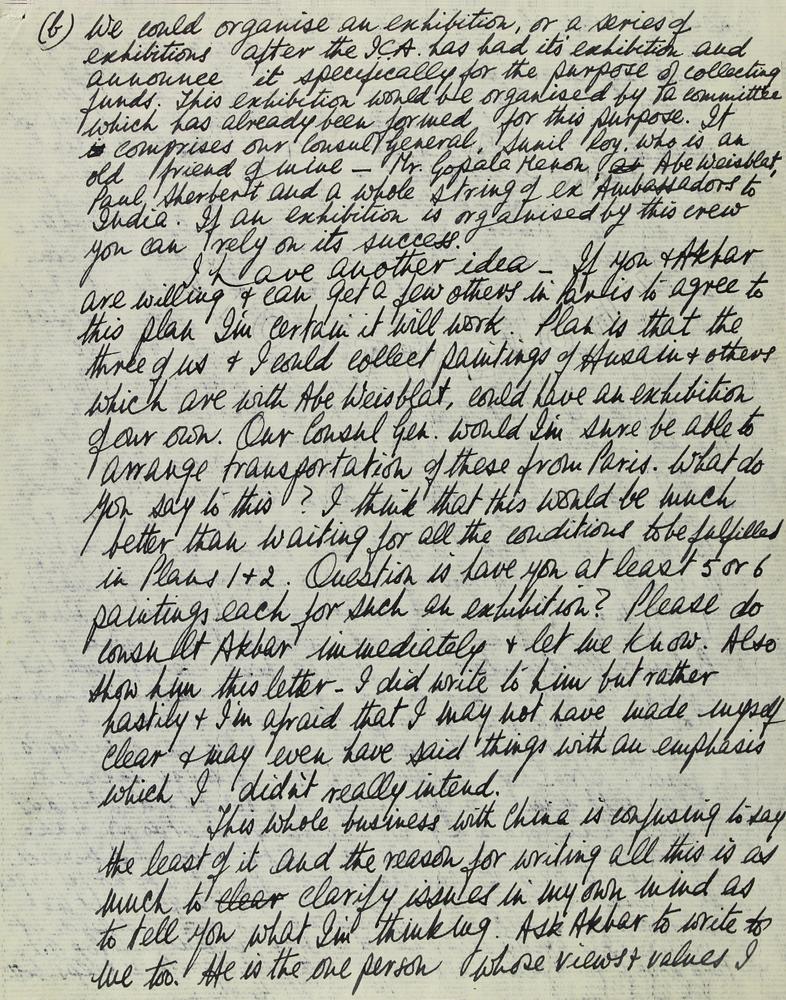 (b) We could organise an exhibition, or a series of
exhibitions after the ICA. has had its exhibition and
announce it specifically for the purpose of collecting
funds. This exhibition would be organised by a committee
which has already been formed for this purpose. It
is comprises our Consul General, Sunil Roy, who is an
old friend of mine – Mr. Gopala Menon, as Abe Weisblat,
Paul Sherbert and a whole string of ex Ambassadors to
India. If an exhibition is organised by this crew
you can rely on its success.
I have another idea – If you & Akbar
are willing & can get a few others in Paris to agree to
this plan I'm certain it will work. Plan is that the
three of us & I could collect paintings of Husain & others
which are with Abe Weisblat, could have an exhibition
of our own. Our Consul Gen. would I'm sure be able to
arrange transportation of these from Paris. What do
you say to this? I think that this would be much
better than waiting for all the conditions to be fulfilled
in Plans 1 & 2. Question is have you at least 5 or 6
paintings each for such an exhibition? Please do
consult Akbar immediately & let me know. Also
show him this letter – I did write to him but rather
hastily & I'm afraid that I may not have made myself
clear & may even have said things with an emphasis
which I didn't really intend.
This whole business with China is confusing to say
the least of it and the reason for writing all this is as
much to clear clarify issues in my own mind as
to tell you what I'm thinking. Ask Akbar to write to
me too. He is the one person whose views & values I